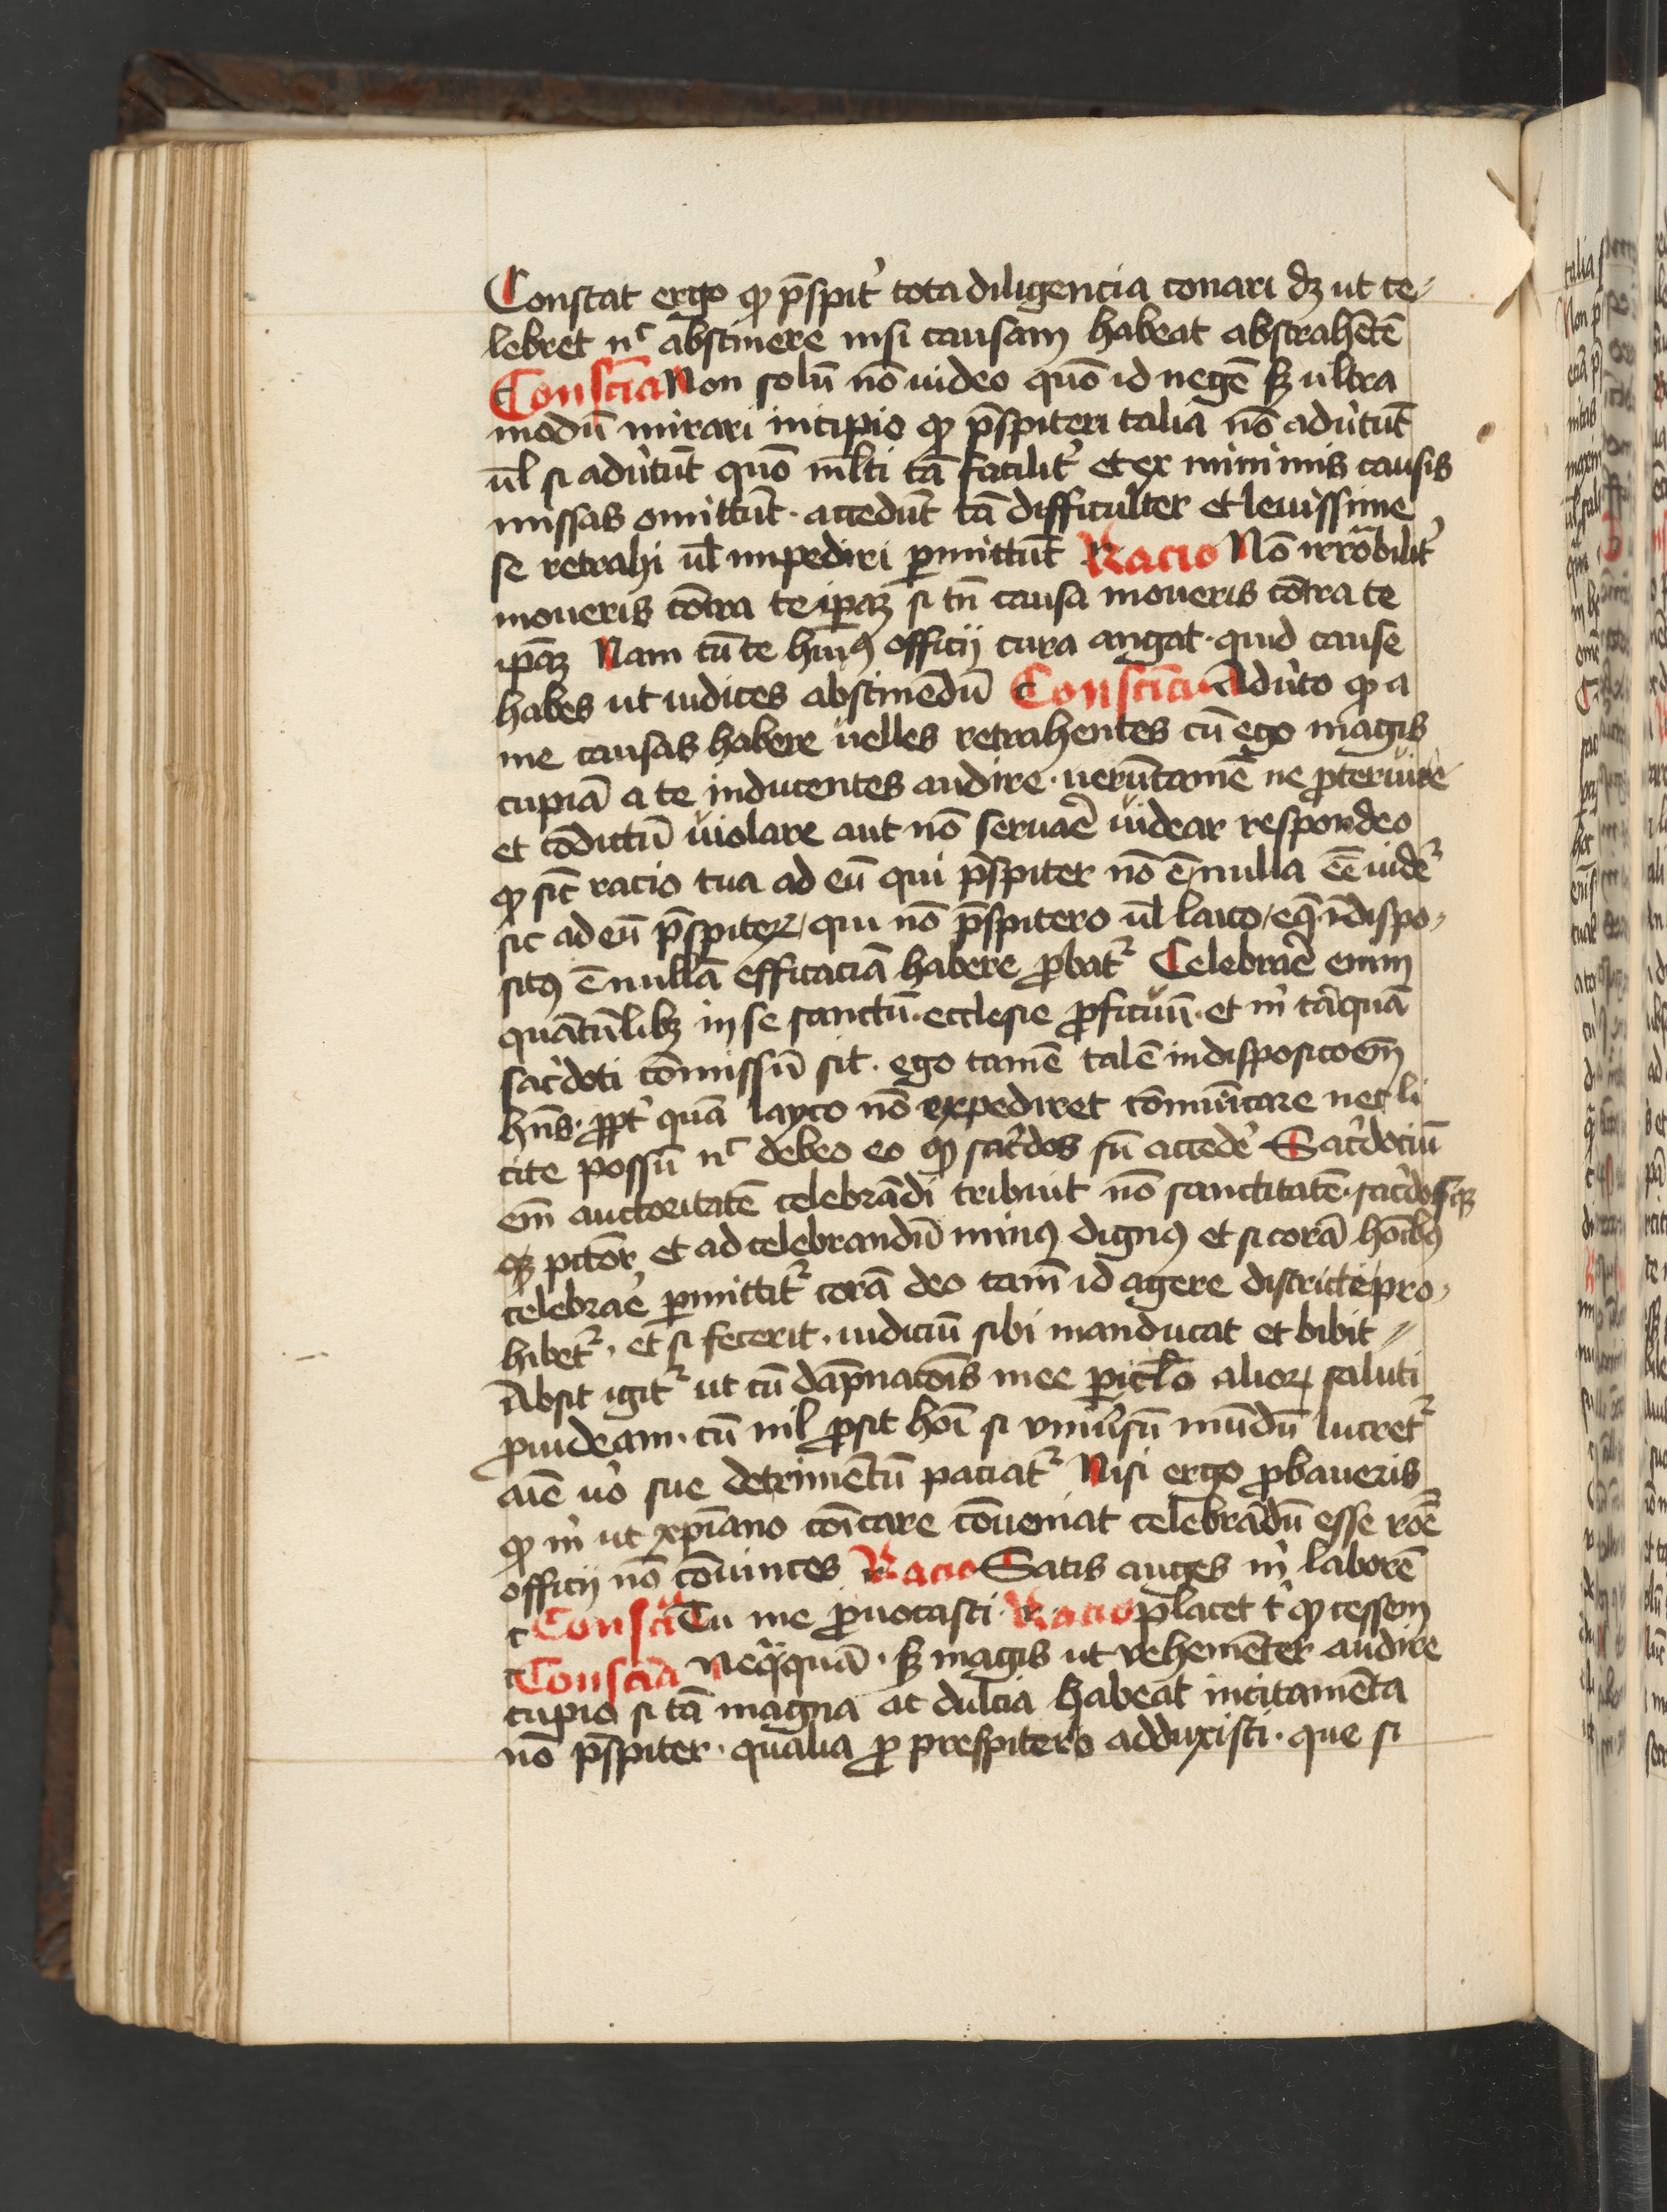 Constat ergo ꝙ p̄spit̾ tota diligencia conari dꝫ ut ce⸗
lebret nᶜ abstinere nisi causam habeat abstrahētē
Consciā Non solū nō uideo quō id negē sꝫ ultra
modū mirari incipio ꝙ p̄spiteri talia nō adu̾tūt
ul̄ si adu̾tūt quō ml̄ti tā facilit̾ et ex minimis causis
missas omittūt · accedūt tā difficulter et leuissime
se retrahi ul̄ impediri ꝑmittūt Racio Nō irrōbilit̾
moueris cōtra te ip̄aꝫ si tn̄ causa moueris cōtra te
ip̄aꝫ Nam cū te hui9 officij cura angat · quid cause
habes ut iudices abstinēdū Consciā Adu̾to ꝙ a
me causas habere uelles retrahentes cū ego magis
cupiā a te inducentes audire · uerūtamē ne ꝓteruire
et cōdictū uiolare aut nō seruare uidear respondeo
ꝙ sic̄ racio tua ad eū qui p̄spiter nō ē / nulla eē uidet̾
sic ad eū p̄spiteꝝ / qui nō p̄spitero ul̄ laico / eq̄ īdispo⸗
sit9 ē nullā efficaciā habere ꝓbat̾ Celebrare enim
quātūlibꝫ in se sanctū · ecclesie ꝓficuū · et m̾ tāquā
sac̾doti cōmissū sit · ego tamē talē indisposicōem
hn̄s · ꝓpt̾ quā layco nō expediret cōmunicare nec li
cite possū nᶜ debeo eo ꝙ sac̾dos sū accede̾ Sac̾dociū
em̄ auctoritatē celebrādi tribuit nō sanctitatē · sac̾dos
pctōr et ad celebrandū min9 dign9 et si corā hoīb9
celebrare ꝑmittit̾ corā deo tam̄ id agere districte pro⸗
hibet̾ · et si fecerit · iudiciū sibi manducat et bibit ⸗
Absit igit̾ ut cū dāpnacōis mee ꝑicl̄o alioꝝ saluti
ꝓuideam · cū nil ꝓsit hoī si vniu̾sū mūdū lucret̾
aīe u̾o sue detrimētū paciat̾ Nisi ergo ꝓbaueris
ꝙ m̾ ut xp̄iano cōīcare cōueniat celebrādū esse rōē
officij nō cōuinces Racio Satis auges m̾ laborē
Consciā Tu me ꝓuocasti · Racio placet t̾ ꝙ cessem
Consciā Neq̄quā · sꝫ magis ut vehemēter audire
cupio si tā magna ac dulcia habeat incitamēta
nō p̄spiter · qualia ꝓ prespitero adduxisti · que si